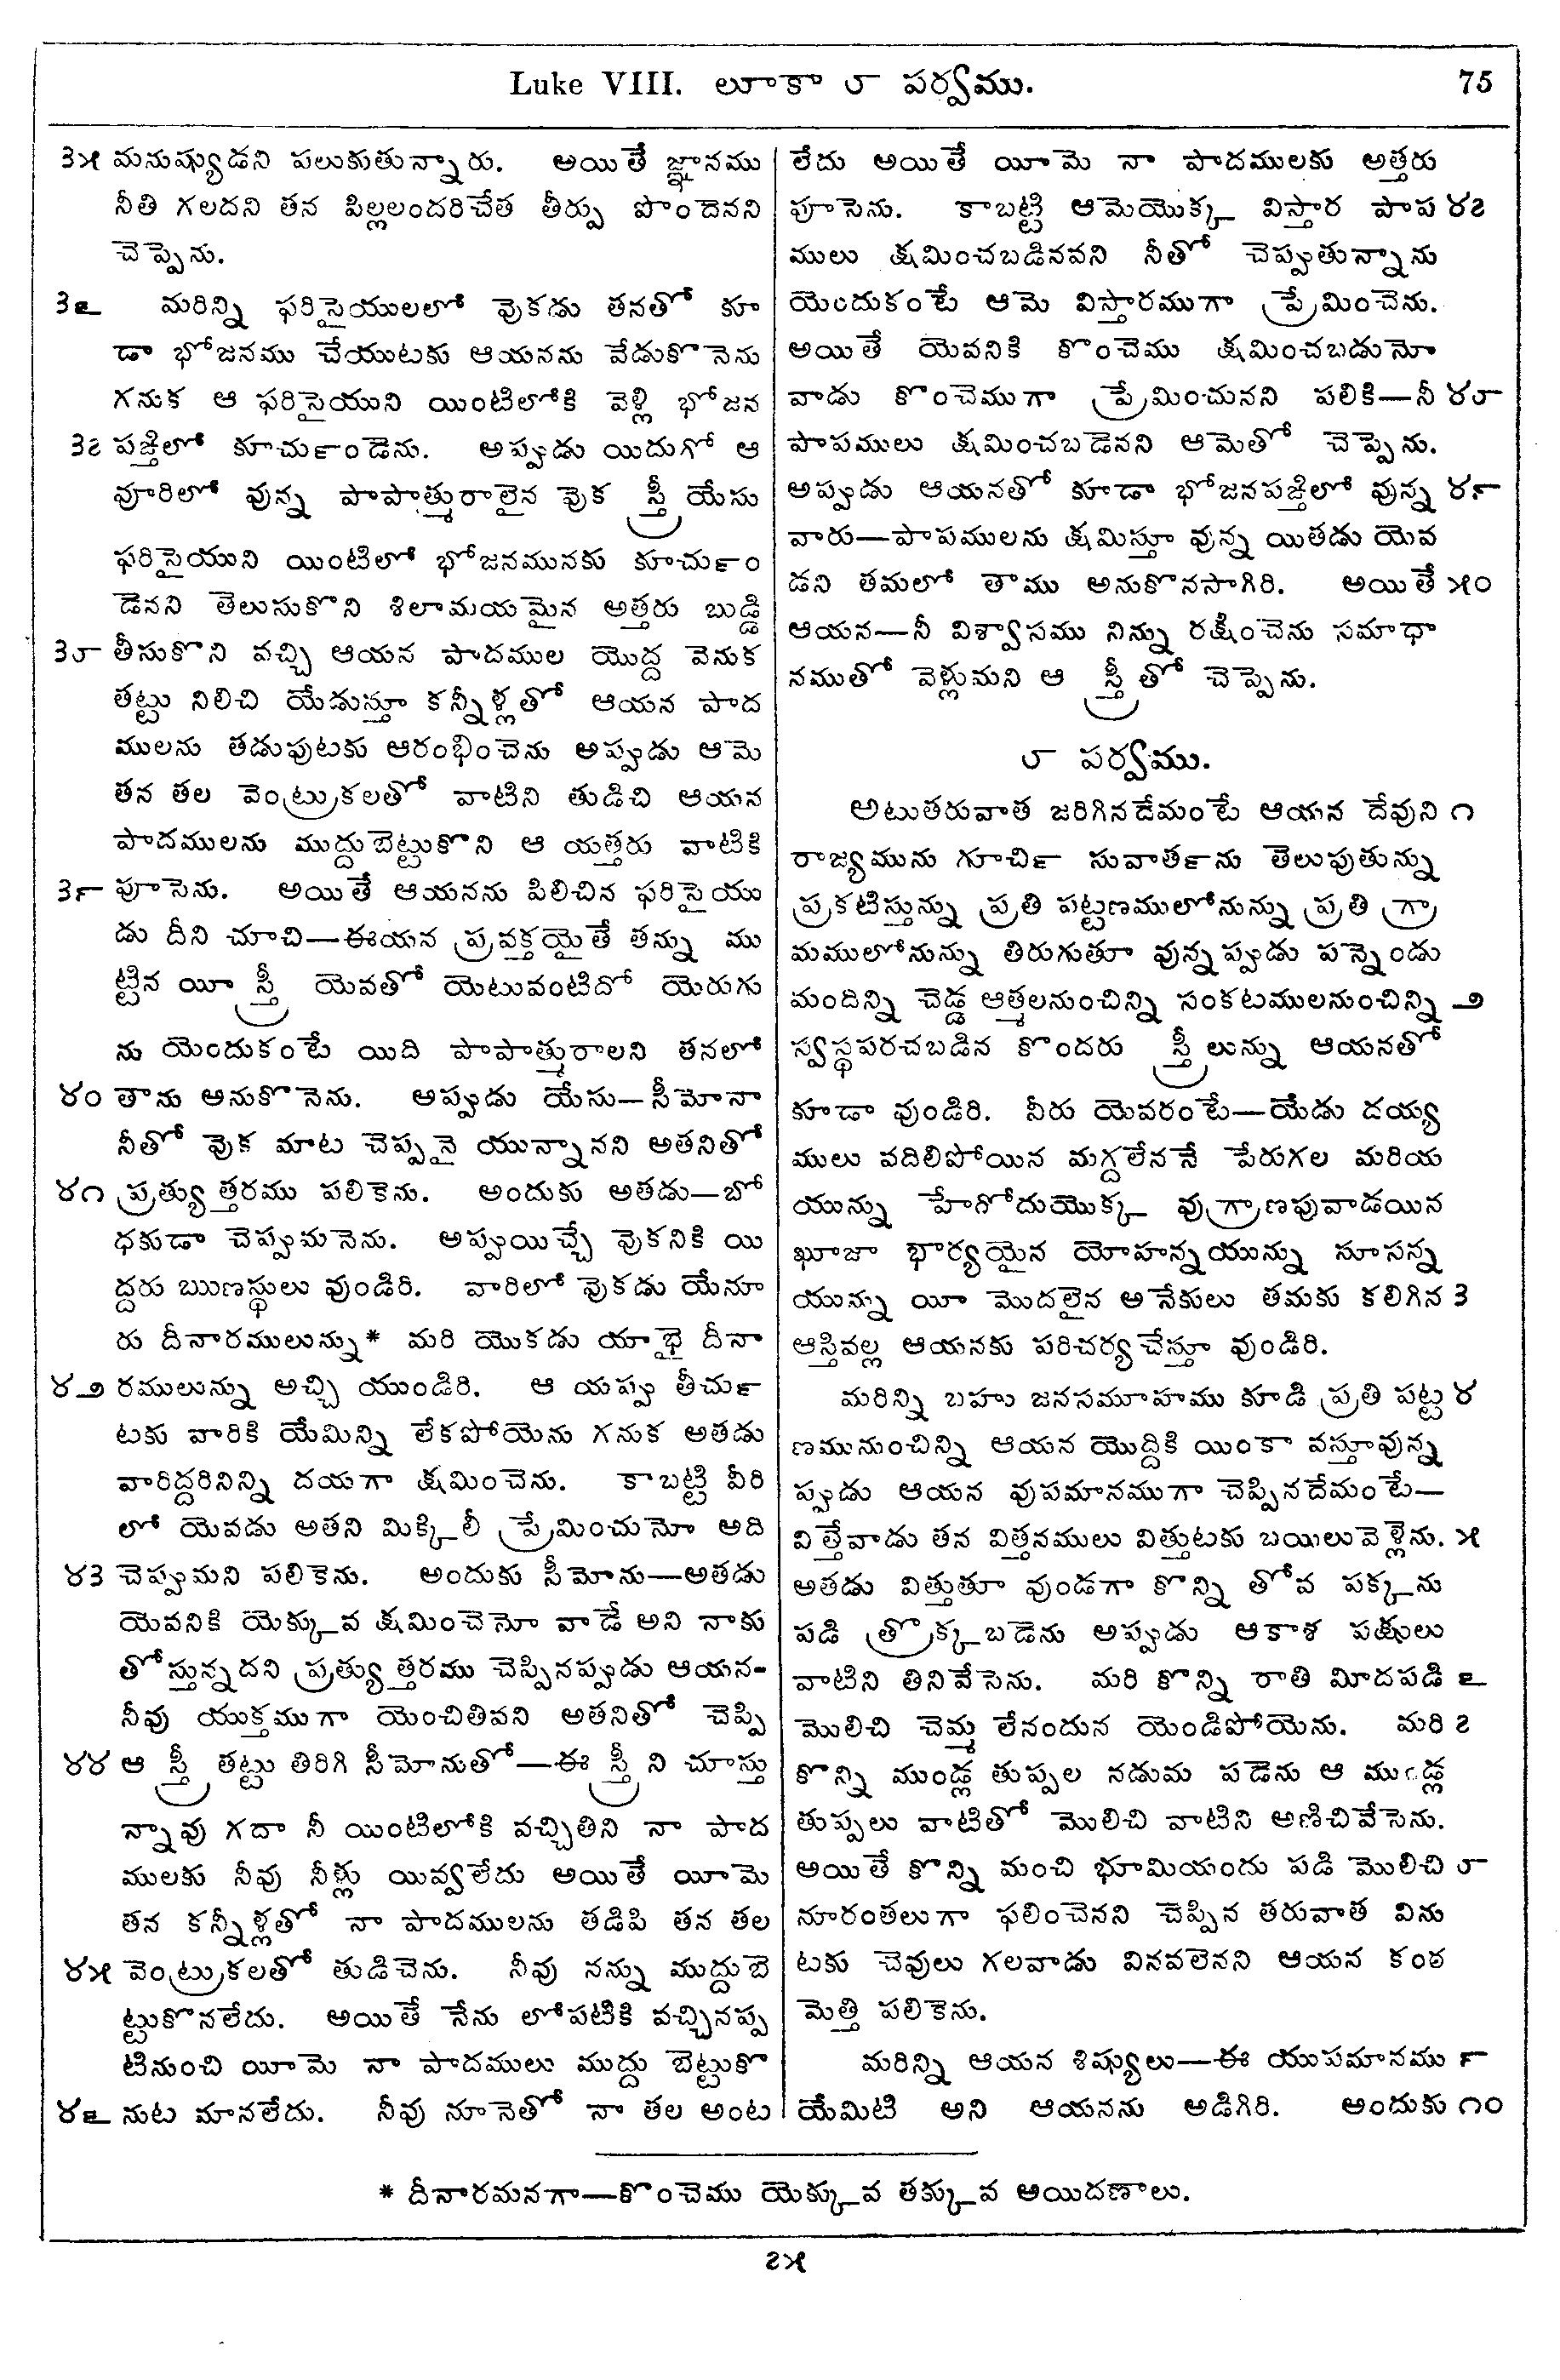 Luke VIII. లూకా ౮ పర్వము. 75
౩౫ మనుష్యుడని పలుకుతున్నారు. అయితే జ్ఞానము
నీతి గలదని తన పిల్లలందరిచేత తీర్పు పొందెనని
చెప్పెను.
౩౬ మరిన్ని ఫరిసైయులలో వొకడు తనతో కూ
డా భోజనము చేయుటకు ఆయనను వేడుకొనెను
గనుక ఆ ఫరిసైయుని యింటిలోకి వెళ్లి భోజన
౩౭ పఙ్తిలో కూచుఁండెను. అప్పుడు యిదుగో ఆ
వూరిలో వున్న పాపాత్మురాలైన వొక స్త్రీ యేసు
ఫరిసైయుని యింటిలో భోజనమునకు కూచుఁం
డెనని తెలుసుకొని శిలామయమైన అత్తరు బుడ్డి
౩౮ తీసుకొని వచ్చి ఆయన పాదముల యొద్ద వెనుక
తట్టు నిలిచి యేడుస్తూ కన్నీళ్లతో ఆయన పాద
ములను తడుపుటకు ఆరంభించెను అప్పుడు ఆమె
తన తల వెంట్రుకలతో వాటిని తుడిచి ఆయన
పాదములను ముద్దుబెట్టుకొని ఆ యత్తరు వాటికి
౩౯ పూసెను. అయితే ఆయనను పిలిచిన ఫరిసైయు
డు దీని చూచి—ఈయన ప్రవక్తయైతే తన్ను ము
ట్టిన యీ స్త్రీ యెవతో యెటువంటిదో యెరుగు
ను యెందుకంటే యిది పాపాత్మురాలని తనలో
౪౦ తాను అనుకొనెను. అప్పుడు యేసు—సీమోనా
నీతో వొక మాట చెప్పనై యున్నానని అతనితో
౪౧ ప్రత్యుత్తరము పలికెను. అందుకు అతడు—బో
ధకుడా చెప్పుమనెను. అప్పుయిచ్చే వొకనికి యి
ద్దరు ఋణస్థులు వుండిరి. వారిలో వొకడు యేనూ
రు దీనారములున్ను* మరి యొకడు యాభై దీనా
౪౨ రములున్ను అచ్చి యుండిరి. ఆ యప్పు తీచుఁ
టకు వారికి యేమిన్ని లేకపోయెను గనుక అతడు
వారిద్దరినిన్ని దయగా క్షమించెను. కాబట్టి వీరి
లో యెవడు అతని మిక్కిలీ ప్రేమించునో అది
౪౩ చెప్పుమని పలికెను. అందుకు సీమోను—అతడు
యెవనికి యెక్కువ క్షమించెనో వాడే అని నాకు
తోస్తున్నదని ప్రత్యుత్తరము చెప్పినప్పుడు ఆయన-
నీవు యుక్తముగా యెంచితివని అతనితో చెప్పి
౪౪ ఆ స్త్రీ తట్టు తిరిగి సీమోనుతో—ఈ స్త్రీని చూస్తు
న్నావు గదా నీ యింటిలోకి వచ్చితిని నా పాద
ములకు నీవు నీళ్లు యివ్వలేదు అయితే యీమె
తన కన్నీళ్లతో నా పాదములను తడిపి తన తల
౪౫ వెంట్రుకలతో తుడిచెను. నీవు నన్ను ముద్దుబె
ట్టుకొనలేదు. అయితే నేను లోపటికి వచ్చినప్ప
టినుంచి యీమె నా పాదములు ముద్దు బెట్టుకొ
౪౬ నుట మానలేదు. నీవు నూనెతో నా తల అంట
లేదు అయితే యీమె నా పాదములకు అత్తరు
పూసెను. కాబట్టి ఆమెయొక్క విస్తార పాప ౪౭
ములు క్షమించబడినవని నీతో చెప్పుతున్నాను
యెందుకంటే ఆమె విస్తారముగా ప్రేమించెను.
అయితే యెవనికి కొంచెము క్షమించబడునో
వాడు కొంచెముగా ప్రేమించునని పలికి—నీ ౪౮
పాపములు క్షమించబడెనని ఆమెతో చెప్పెను.
అప్పుడు ఆయనతో కూడా భోజనపఙ్తిలో వున్న ౪౯
వారు—పాపములను క్షమిస్తూ వున్న యితడు యెవ
డని తమలో తాము అనుకొనసాగిరి. అయితే ౫౦
ఆయన—నీ విశ్వాసము నిన్ను రక్షించెను సమాధా
నముతో వెళ్లుమని ఆ స్త్రీతో చెప్పెను.
౮ పర్వము.
అటుతరువాత జరిగినదేమంటే ఆయన దేవుని ౧
రాజ్యమును గూచిఁ సువాతఁను తెలుపుతున్ను
ప్రకటిస్తున్ను ప్రతి పట్టణములోనున్ను ప్రతి గ్రా
మములోనున్ను తిరుగుతూ వున్నప్పుడు పన్నెండు
మందిన్ని చెడ్డ ఆత్మలనుంచిన్ని సంకటములనుంచిన్ని ౨
స్వస్థపరచబడిన కొందరు స్త్రీలున్ను ఆయనతో
కూడా వుండిరి. వీరు యెవరంటే—యేడు దయ్య
ములు వదిలిపోయిన మగ్దలేననే పేరుగల మరియ
యున్ను హేరోదుయొక్క వుగ్రాణపువాడయిన
ఖూజా భార్యయైన యోహన్నయున్ను సూసన్న
యున్ను యీ మొదలైన అనేకులు తమకు కలిగిన ౩
ఆస్తివల్ల ఆయనకు పరిచర్యచేస్తూ వుండిరి.
మరిన్ని బహు జనసమూహము కూడి ప్రతి పట్ట ౪
ణమునుంచిన్ని ఆయన యొద్దికి యింకా వస్తూవున్న
ప్పుడు ఆయన వుపమానముగా చెప్పినదేమంటే—
విత్తేవాడు తన విత్తనములు విత్తుటకు బయిలువెళ్లెను. ౫
అతడు విత్తుతూ వుండగా కొన్ని తోవ పక్కను
పడి త్రొక్కబడెను అప్పుడు ఆకాశ పక్షులు
వాటిని తినివేసెను. మరి కొన్ని రాతి మీదపడి ౬
మొలిచి చెమ్మ లేనందున యెండిపోయెను. మరి ౭
కొన్ని ముండ్ల తుప్పల నడుమ పడెను ఆ ముండ్ల
తుప్పలు వాటితో మొలిచి వాటిని అణిచివేసెను.
అయితే కొన్ని మంచి భూమియందు పడి మొలిచి ౮
నూరంతలుగా ఫలించెనని చెప్పిన తరువాత విను
టకు చెవులు గలవాడు వినవలెనని ఆయన కంఠ
మెత్తి పలికెను.
మరిన్ని ఆయన శిష్యులు—ఈ యుపమానము ౯
యేమిటి అని ఆయనను అడిగిరి. అందుకు ౧౦
* దీనారమనగా—కొంచెము యెక్కువ తక్కువ అయిదణాలు.
౭౫